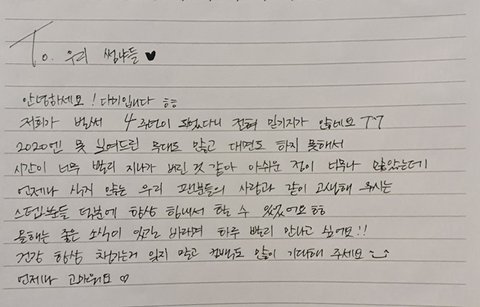 To. 우리 썸냐들 ♥
안녕하세요! 다미입니다 ㅎㅎ
저희가 벌써 4주년이 되었다니 전혀 믿기지가 않네요 ㅜㅜ
2020엔 못 보여드린 무대도 많고 대면도 하지 못해서
시간이 너무 빨리 지나가 버린 것 같아 아쉬운 점이 너무나 많았는데
언제나 식지 않는 우리 팬분들의 사랑과 같이 고생해 주시는
스태프분들 덕분에 항상 힘내서 할 수 있었어요 ㅎㅎ
올해는 좋은 소식이 있길 바라며 하루 빨리 만나고 싶어요!!
건강 항상 챙기는거 잊지 말고 컴백도 많이 기대해 주세요
언제나 고마워요 ♡